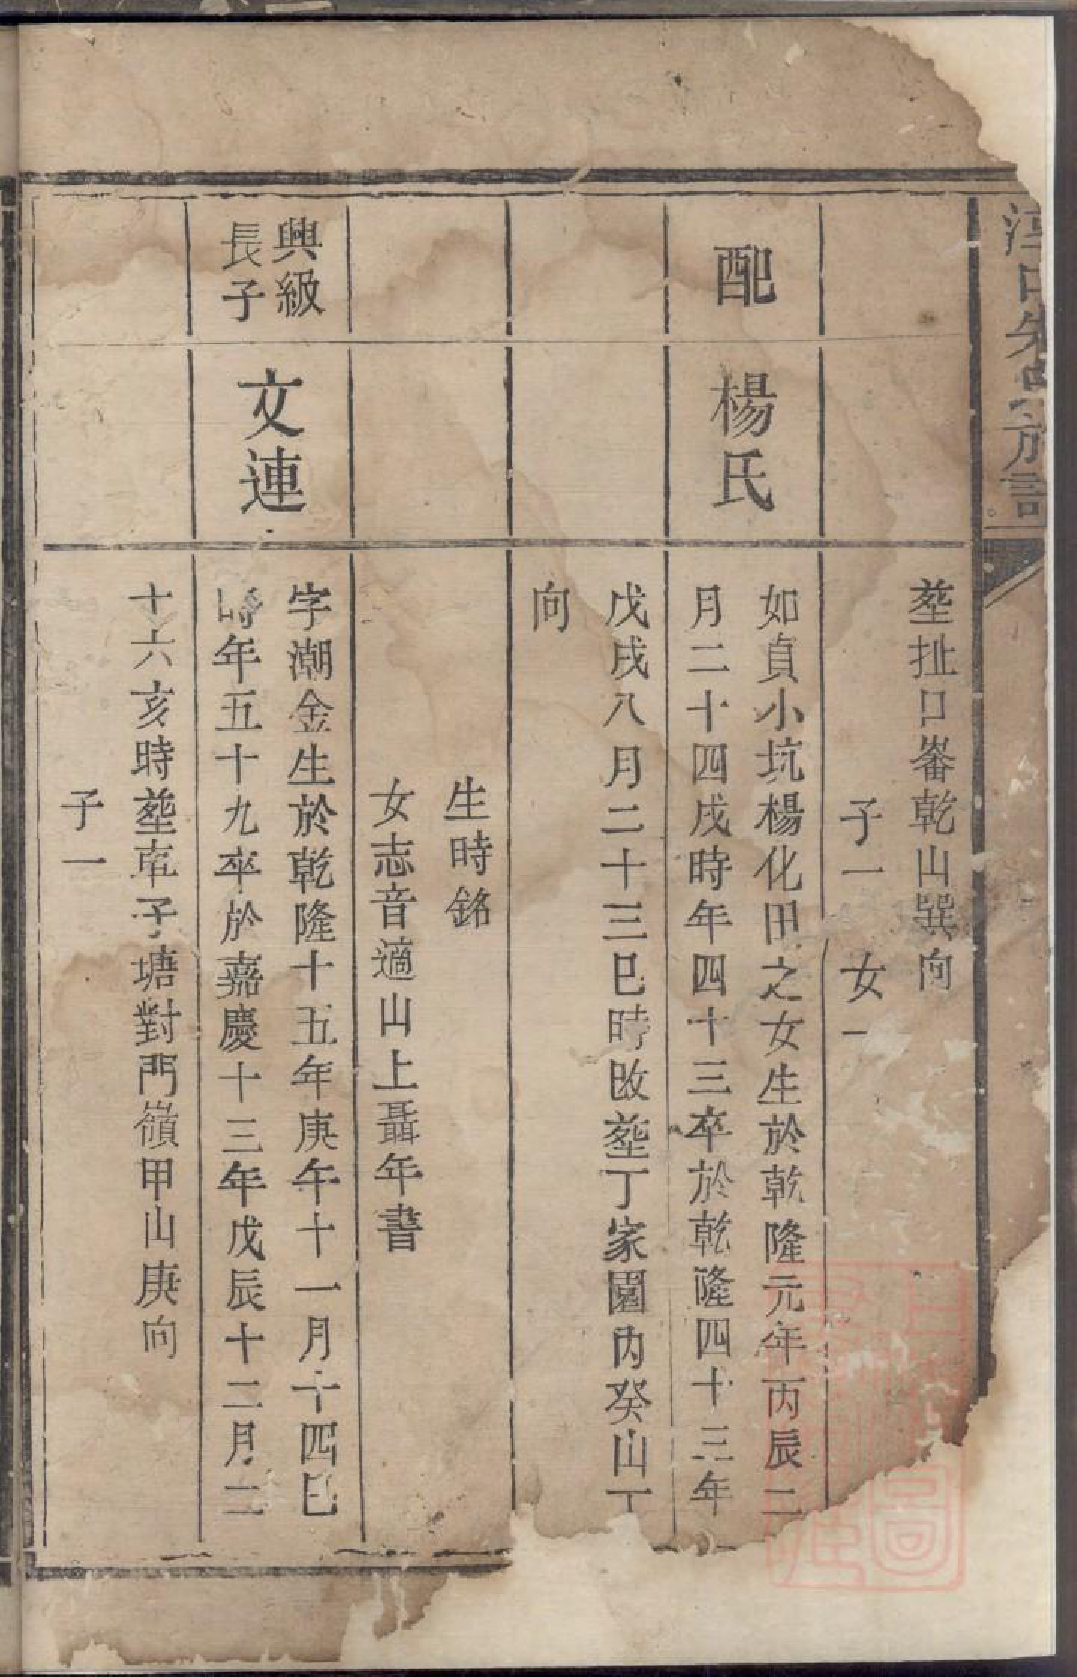 塟扯口畨乾山巽向
子一 女一
配
楊氏
如貞小坑楊化田之女生於乾隆元年丙辰二
月二十四戌時年四十三卒於乾隆四十三年
戊戌八月二十三巳時改塟丁家園內癸山丁
向
生時銘
女志音適山上聶年書
興級
長子
文連
字潮金生於乾隆十五年庚午十一月十四巳
時年五十九卒於嘉慶十三年戊辰十二月二
十六亥時塟車子塘對門嶺甲山庚向
子一